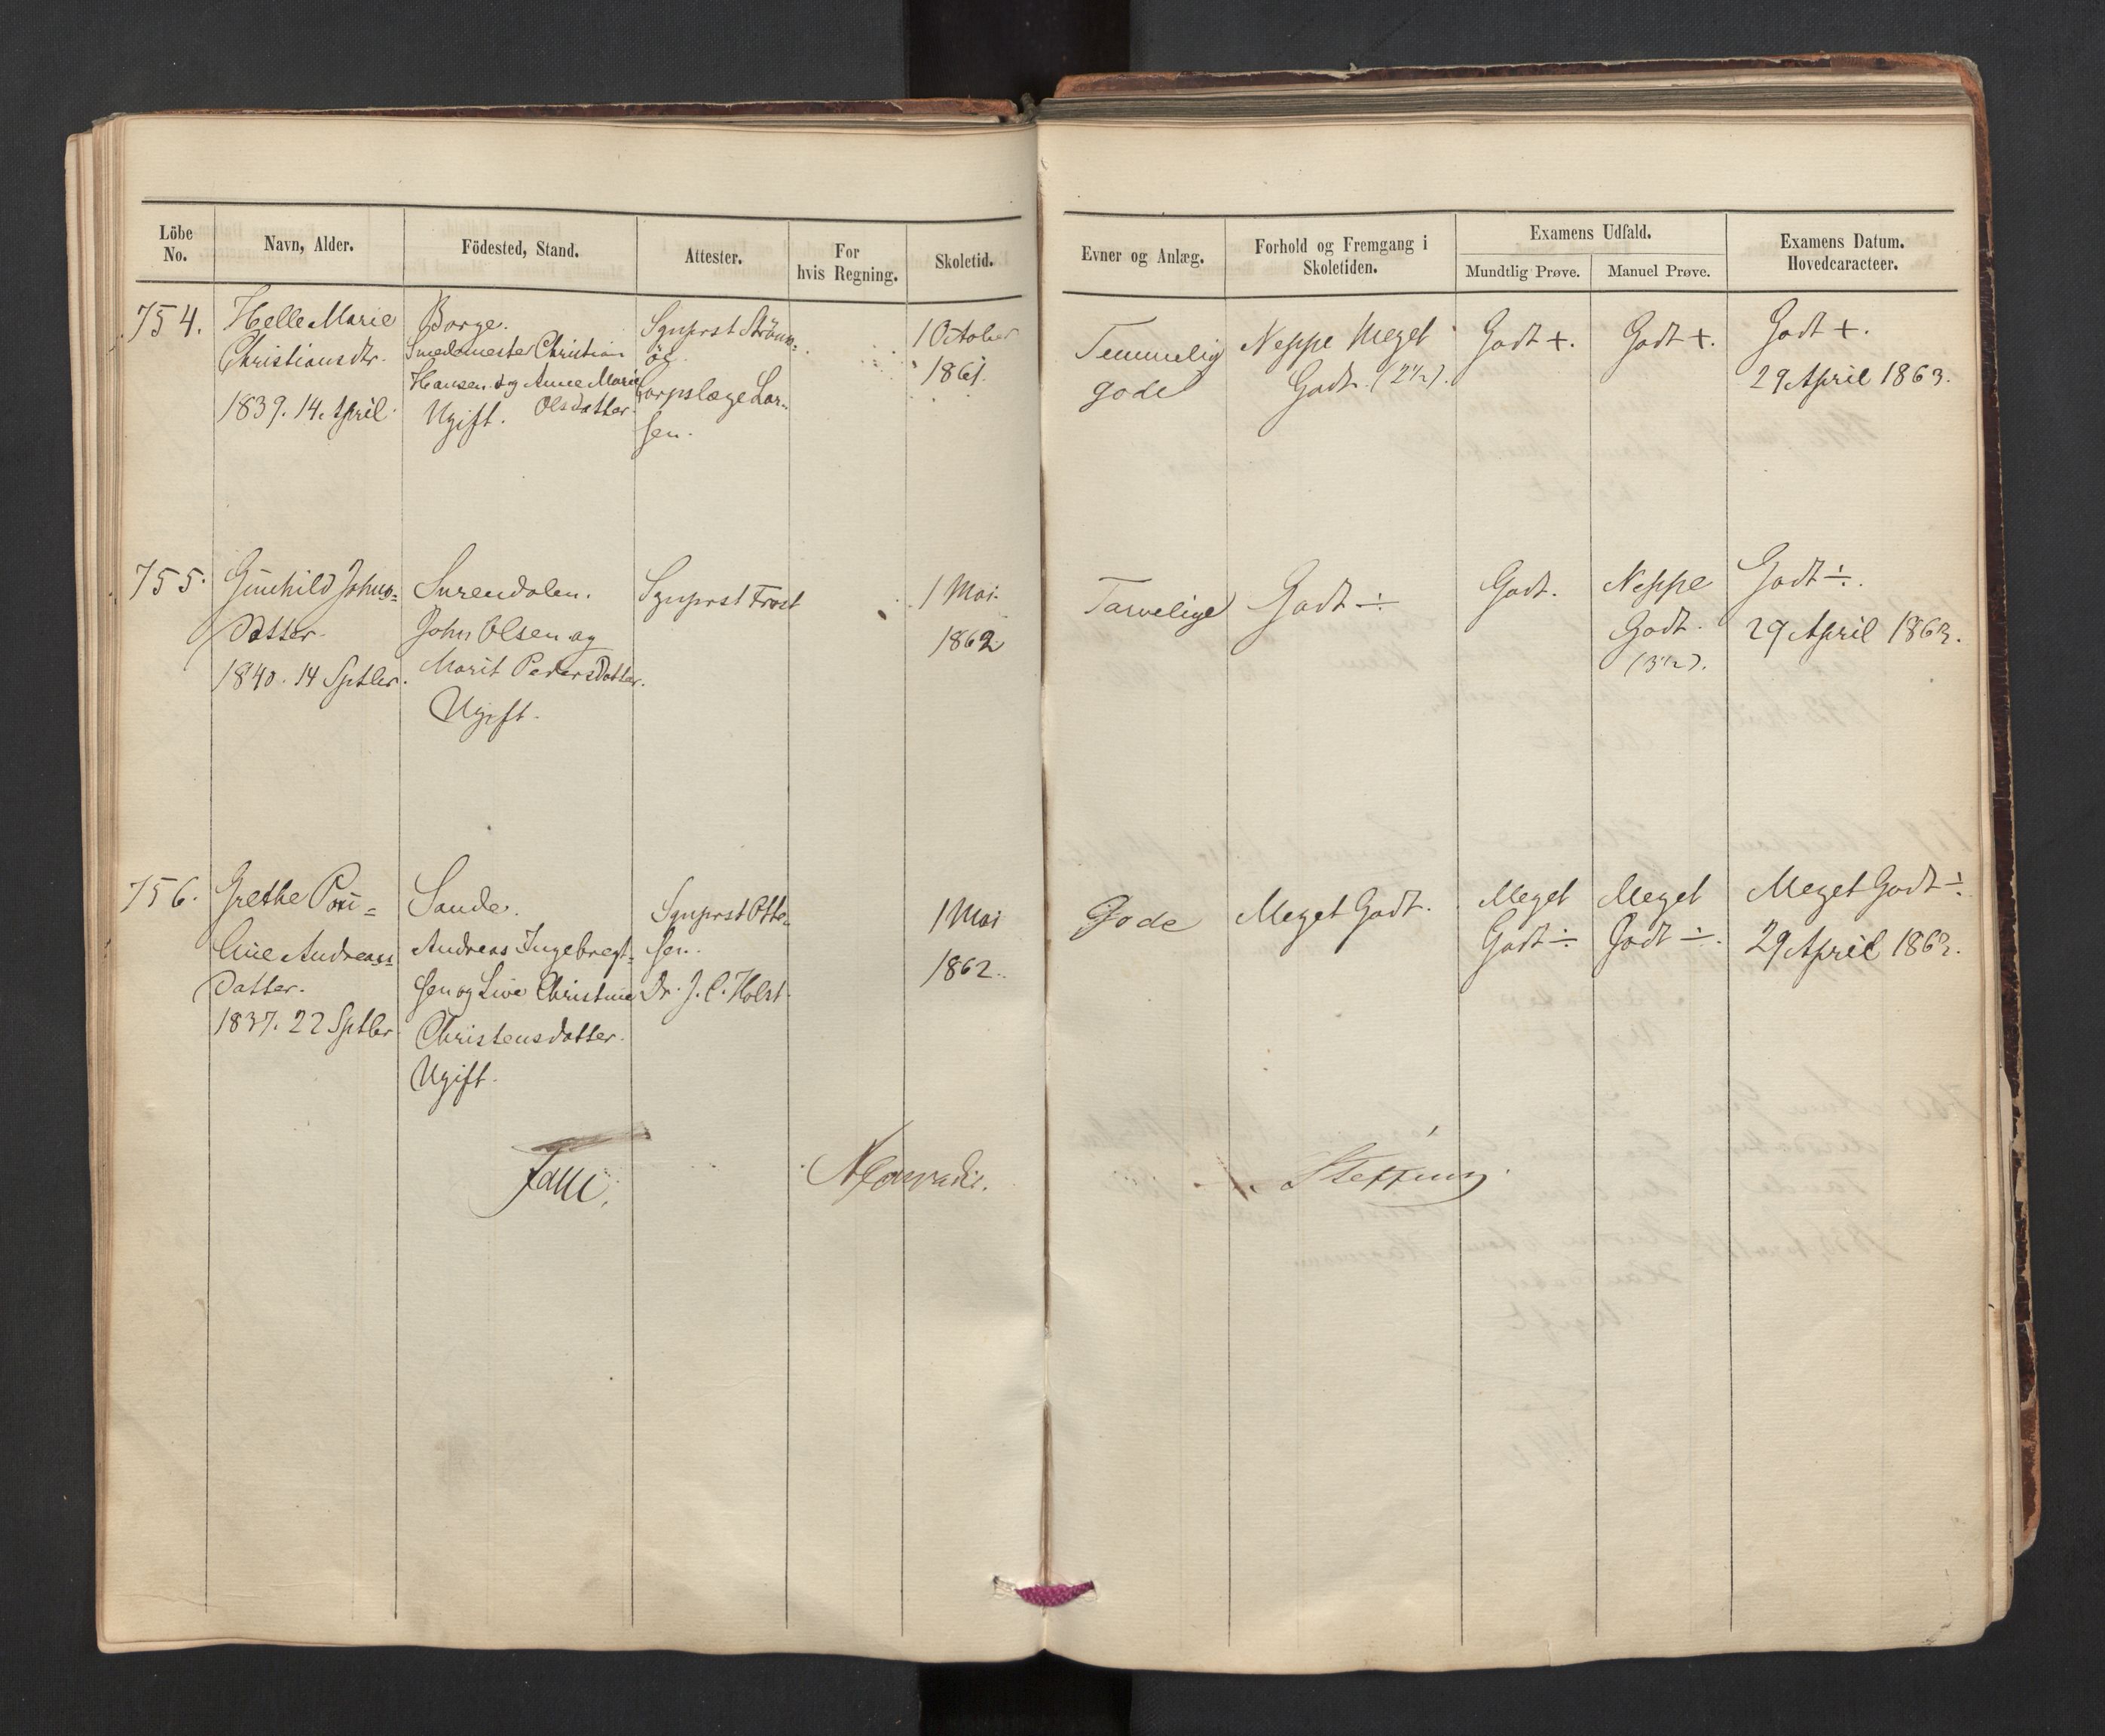 Löbe No.
Navn, Alder.
Födested, Stand.
Attester.
For hvis Regning.
Skoletid.
Evner og Anlæg.
Forhold og Fremgang i Skoletiden.
Examens Udfald.
Mundtlig Prøve.
Manuel Prøve.
Examens Datum. Hovedcaracteer.
754.
Helle Marie
Christiansdtr.
1839. 14. April.
Borge.
Smedemester Christian
Hansen og Anne Marie
Olsdatter.
Ugift.
Sgnprst Ström-
öe.
Corpslæge Lar-
sen.
1 October
1861.
Temmelig
gode
Neppe Meget
Godt. (2 1/2).
Godt +.
Godt +.
Godt +.
29 April 1863.
755.
Gunhild Johns-
Datter.
1840. 14 Sptbr.
Surendalen.
John Olsen og
Marit Pedersdatter.
Ugift.
Sgnprst Frost
1 Mai.
1862
Tarvelige
Godt ÷.
Godt.
Neppe
Godt.
(3 1/2).
Godt ÷.
29 April 1863.
756.
Grethe Pou-
line Andreas-
Datter.
1837. 22 Sptbr.
Sande.
Andreas Ingebregt-
sen og Live Christine
Christensdatter.
Ugift.
Sgnprst Otte-
sen.
Dr. J. C. Holst.
1 Mai
1862.
Gode
Meget Godt.
Meget
Godt ÷.
Meget
Godt ÷.
Meget Godt ÷.
29 April 1863.
Faye.
Steffens